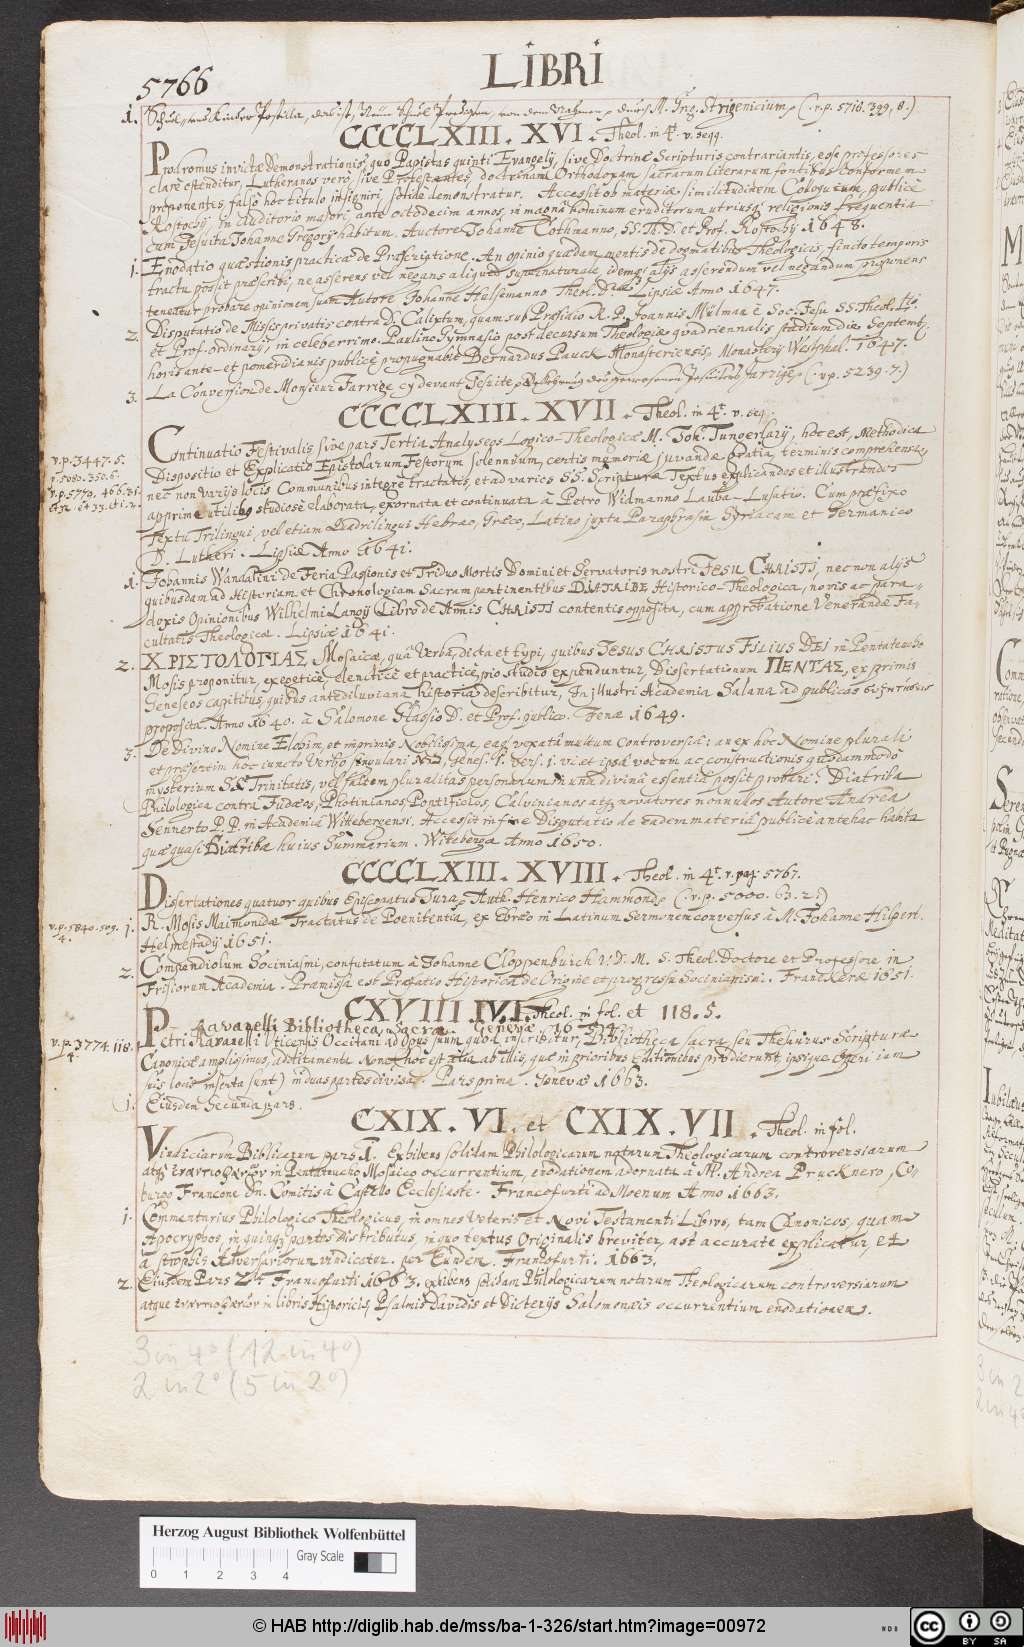 5766
LIBRI
1. Schul und Kinder Postilla, das ist, Neün Schul Predigten, von dem durch M. Grg. Strigenicium. (v.p. 5718. 399, 8.)
CCCCLXIII. XVI. Theol. in 4t. v. seqq.
Prodromus invictæ Demonstrationis, quo Papistas quinti Evangelij, sive Doctrinæ Scripturis contrariantis, esse professores
clare ostenditur, Lutheranos vero, sive Protestantes, doctrinam Orthodoxam, sacrarum literarum fontibus conformem
proponentes, falso hoc titulo insigniri, solide demonstratur. Accessit ob materiæ similitudinem Colloquium, publice
Rostochij, in Auditorio majori ante octodecim annos, in magna hominum eruditorum utriusq religionis frequentia
cum Jesuita Johanne Gregorij habitum. Auctore Johanne Cothmanno, SS. Th. D. et Prof. Rostochij. 1648.
1. Enodatio quæstionis practicæ De Præscriptione. An opinio quædam mentis de dogmatibus Theologicis, finito temporis
tractu possit præscribi, ne asserens vel negans aliquod supernaturale, idemq alijs asserendum vel negandum proponens
teneatur probare opinionem suam Autore Johanne Hülsemanno Theol. D. Lipsiæ Anno 1647.
2. Disputatio de Missis privatis contra D. Calixtum, quam sub Præsidio R. P. Joannis Mülman è Soc. Jesu SS. Theol.
et Prof. ordinarij, in celeberrimo Paulino Gymnasio post decursum Theologiæ quadriennalis studium die Septemb.
horis ante- et pomeridianis publice propugnabit Bernardus Pauck Monasteriensis, Monasterij Westphal. 1647.
3. La Conversion de Monsieur Jarrige cy devant Jesuite, Bekehrung des gewesenen Jesuiters Jarrige. (v.p. 5239. 7.)
CCCCLXIII. XVII. Theol. in 4t. v. seq.
v.p. 3447. 5.
v. 5080. 350. 6.
v.p. 5770. 466. 35.
Continuatio Festivalis sive pars Tertia Analyseos Logico-Theologicæ M. Joh. Tungerlarij, hoc est, Methodica
Dispositio et Explicatio Epistolarum Festorum solennium, certis memoriæ juvandæ gratia terminis comprehensa,
nec non varijs locis Communibus integre tractatis, et ad varios SS. Scripturæ Textus explicandos et illustrandos
apprime utilibus studiose elaborata, exornata et continuata à Petro Widmanno Lauba-Lusatio. Cum præfixo
Textu Trilingui, vel etiam Quadrilingui Hebræo, Græco, Latino juxta Paraphrasin Syriacam et Germanico
D. Lutheri. Lipsiæ Anno 1641.
1. Johannis Wandalini de Feria Passionis et Triduo Mortis Domini et Servatoris nostri JESU CHRISTI, nec non alijs
quibusdam ad Historiam et Chronologiam Sacram pertinentibus DIATRIBE Historico-Theologica, novis ac para-
doxis Opinionibus Wilhelmi Langij Libro de Annis CHRISTI contentis opposita, cum approbatione Venerandæ Fa-
cultatis Theologicæ. Lipsiæ 1641.
2. ΧΡΙΣΤΟΛΟΓΙΑΣ Mosaicæ, quâ Verba, dicta et typi, quibus JESUS CHRISTUS FILIUS DEI in Pentateucho
Mosis proponitur, exegetice, elenctice et practice, pio studio expenduntur, Dissertationum ΠΕΝΤΑΣ, ex primis
Geneseos capitibus, quibus antediluviana historia describitur, In Illustri Academia Salana ad publicas
proposita. Anno 1640. à Salomone Glassio D. et Prof. publico. Jenæ 1649.
3. De Divino Nomine Elohim, et imprimis Nobilissima, eaq vexatâ multum Controversiâ: an ex hoc Nomine plurali
et præsertim hoc iuncto Verbo singulari ברא, Genes. 1. vers. 1. vi et ipsâ vocum ac constructionis quodammodo
mysterium SS. Trinitatis, vel saltem pluralitas personarum in una divinâ essentiâ possit probari? Diatriba
Philologica contra Judæos, Photinianos, Pontificios, Calvinianos atq novatores nonnullos Autore Andrea
Sennerto P. P. in Academiâ Wittebergensi. Accessit in fine Disputatio de eadem materiâ publice antehac habita
quæ quasi Diatribæ huius Summarium. Witebergæ Anno 1650.
CCCCLXIII. XVIII. Theol. in 4t. v. pag. 5767.
Dissertationes quatuor quibus Episcopatus Jura. Auth. Henrico Hammond. (v.p. 5000. 63. 2.)
v.p. 5840. 509.
4.
1. R. Mosis Maimonidæ Tractatus de Poenitentia, ex Ebræo in Latinum Sermonem conversus à M. Johanne Hilpert.
Helmestadij 1651.
2. Compendiolum Socinianismi, confutatum à Johanne Cloppenburch V. D. M. S. Theol. Doctore et Professore in
Frisiorum Academia. Præmissa est Præfatio Historica de Origine et progressu Socinianismi. Franekeræ 1651.
CXVIII IVI. Theol. in fol. et 118. 5.
Ravanelli Bibliotheca sacra. Genevæ 16
v.p. 3774. 118.
4.
Petri Ravanelli Uticensis Occitani ad Opus suum quod inscribitur, Bibliotheca sacra, seu Thesaurus Scripturæ
Canonicæ amplissimus, additamenta Nova (hoc est alia ab illis, quæ in prioribus Editionibus prodierunt, ipsique Operi iam
suis locis inserta sunt) in duas partes divisa. Pars prima. Genevæ 1663.
1. Eiusdem Secunda pars.
CXIX. VI. et CXIX. VII. Theol. in fol.
Vindiciarum Biblicarum pars 1. Exhibens solidam Philologicarum notarum Theologicarum controversiarum
atq in Pentateucho Mosaico occurrentium, enodationem adornata à M. Andrea Prucknero, Co-
burgo Francone Dn. Comitis à Castello Ecclesiaste. Francofurti ad Moenum Anno 1663.
1. Commentarius Philologico Theologicus, in omnes Veteris et Novi Testamenti Libros, tam Canonicos, quam
Apocryphos, in quinq partes distributus, in quo textus Originalis breviter, ast accurate explicatur, et
a strophis Adversariorum vindicatur. per Eundem. Francofurti. 1663.
2. Eiusdem Pars 2da Francofurti 1663. exhibens solidam Philologicarum notarum Theologicarum controversiarum
atque in libris Historicis, Psalmis Davidis et Dicterijs Salomonæis occurrentium enodationem.
3 in 4° (12 in 4°)
2 in 2° (5 in 2°)
Herzog August Bibliothek Wolfenbüttel
Gray Scale
0 1 2 3 4
© HAB http://diglib.hab.de/mss/ba-1-326/start.htm?image=00972
WDB
cc BY SA